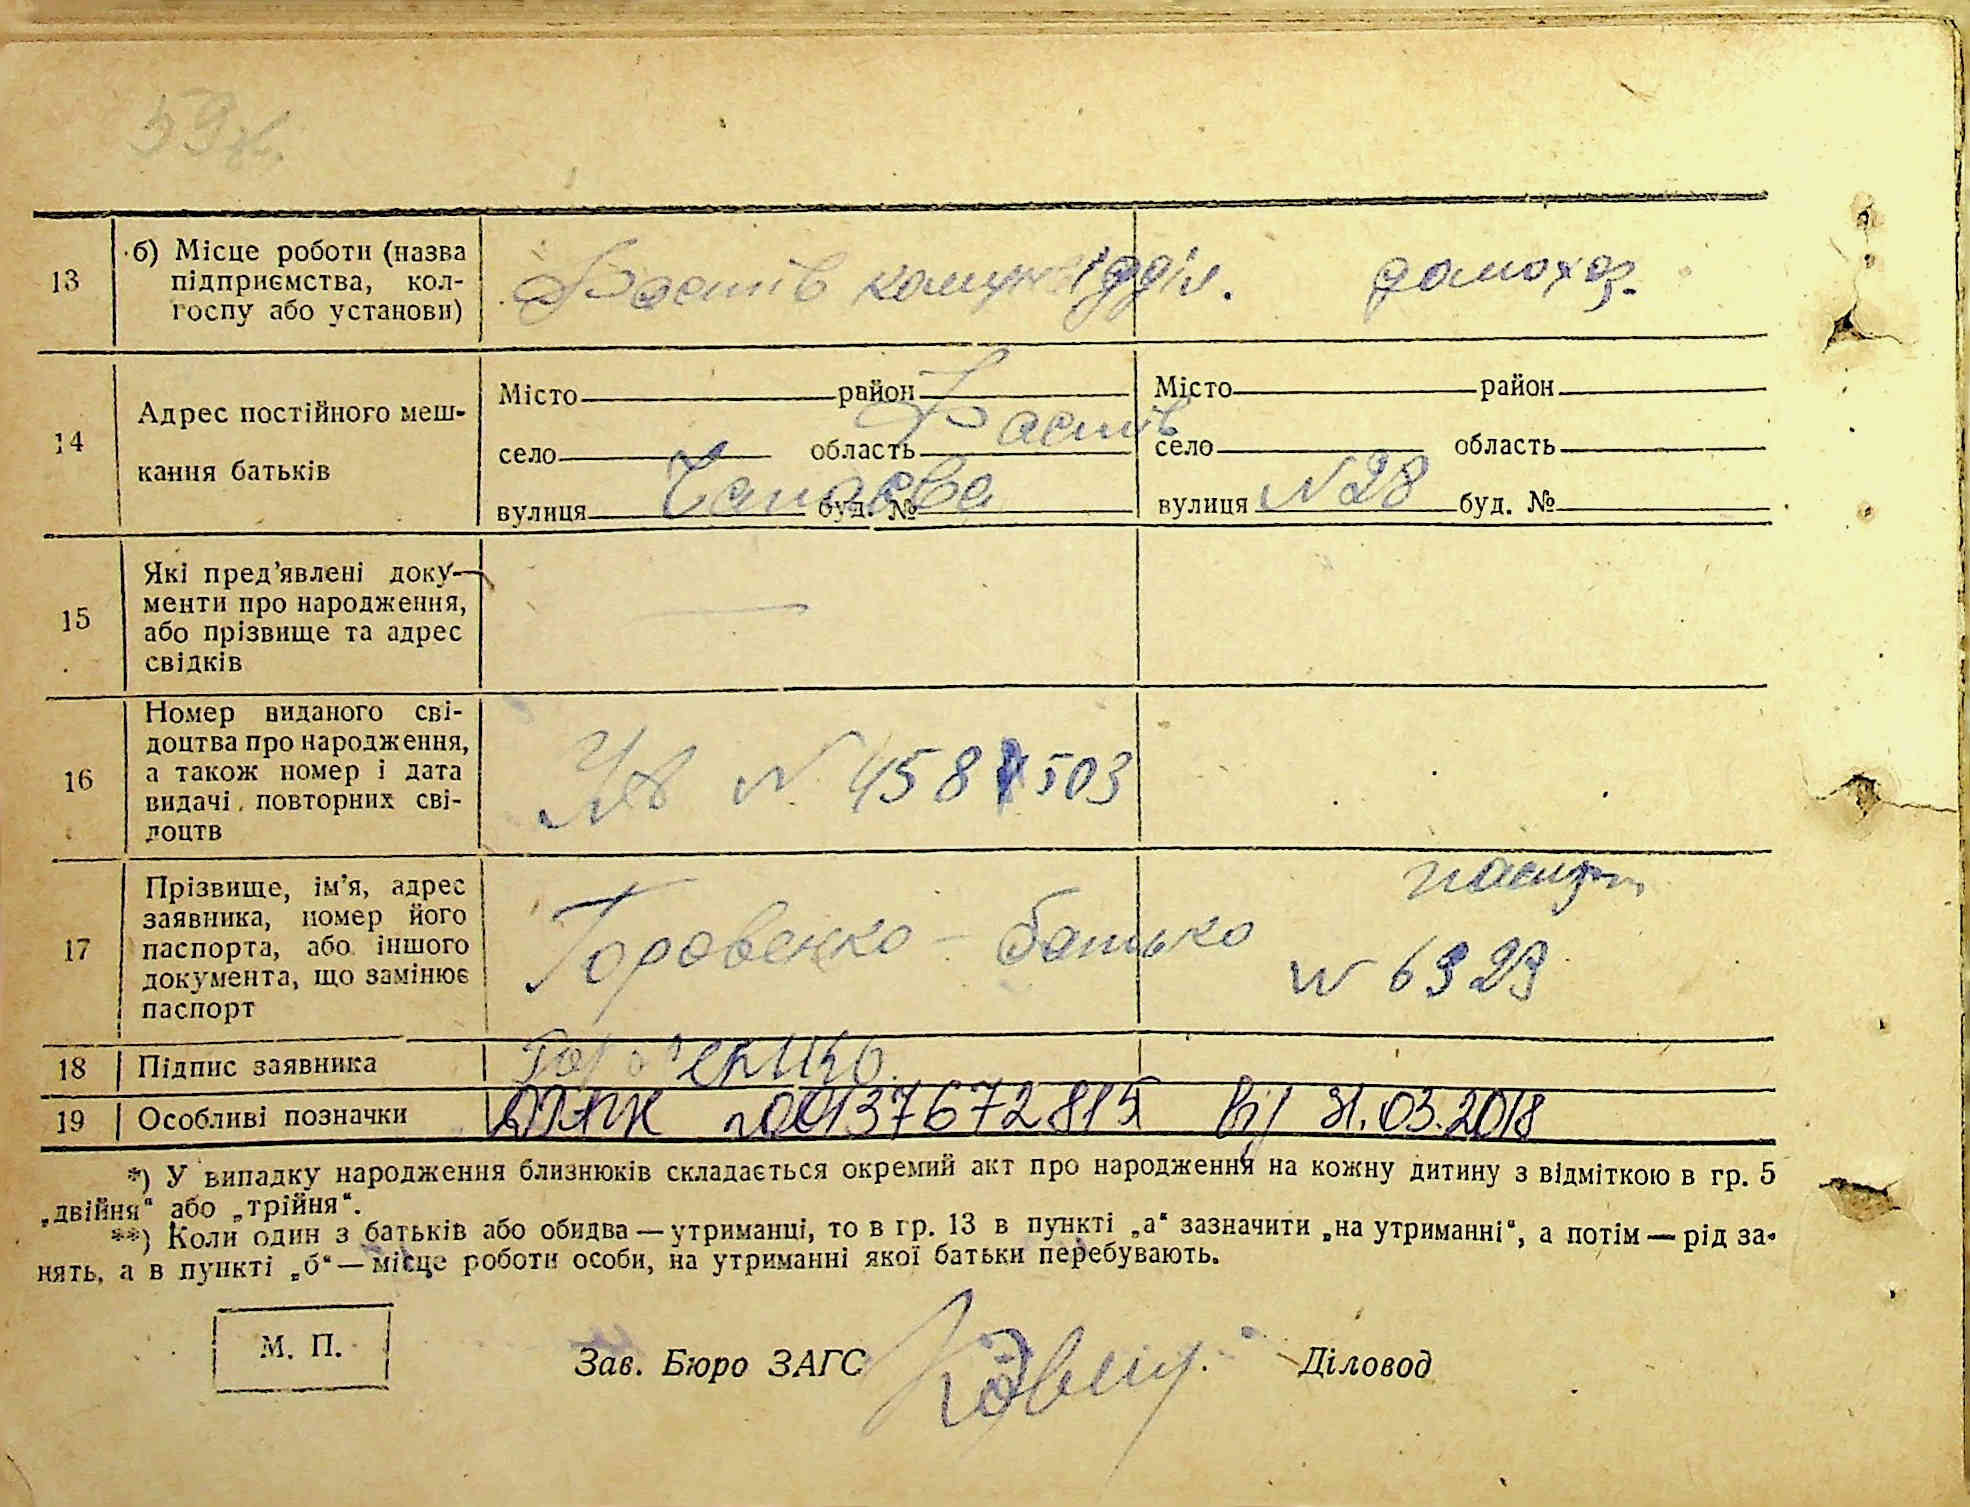 59
13
б) Місце роботи (назва
підприємства, кол-
госпу або установи)
Фастів комун відділ.
домохоз.
14
Адрес постійного меш-
кання батьків
Місто район
село область Фастів
вулиця Чапаєва буд. №
Місто район
село область
вулиця N 28 буд. №
15
Які пред’явлені доку-
менти про народження,
або прізвище та адрес
свідків
—
16
Номер виданого сві-
доцтва про народження,
а також номер і дата
видачі повторних сві-
доцтв
N 4581503
17
Прізвище, ім’я, адрес
заявника, номер його
паспорта, або іншого
документа, що замінює
паспорт
Горовенко – батько
паспорт
N 6323
18
Підпис заявника
19
Особливі позначки
N 00137672815 від 31.03.2018
*) У випадку народження близнюків складається окремий акт про народження на кожну дитину з відміткою в гр. 5
„двійня“ або „трійня“.
**) Коли один з батьків або обидва — утриманці, то в гр. 13 в пункті „а“ зазначити „на утриманні“, а потім — рід за-
нять, а в пункті „б“ — місце роботи особи, на утриманні якої батьки перебувають.
М. П.
Зав. Бюро ЗАГС
Діловод